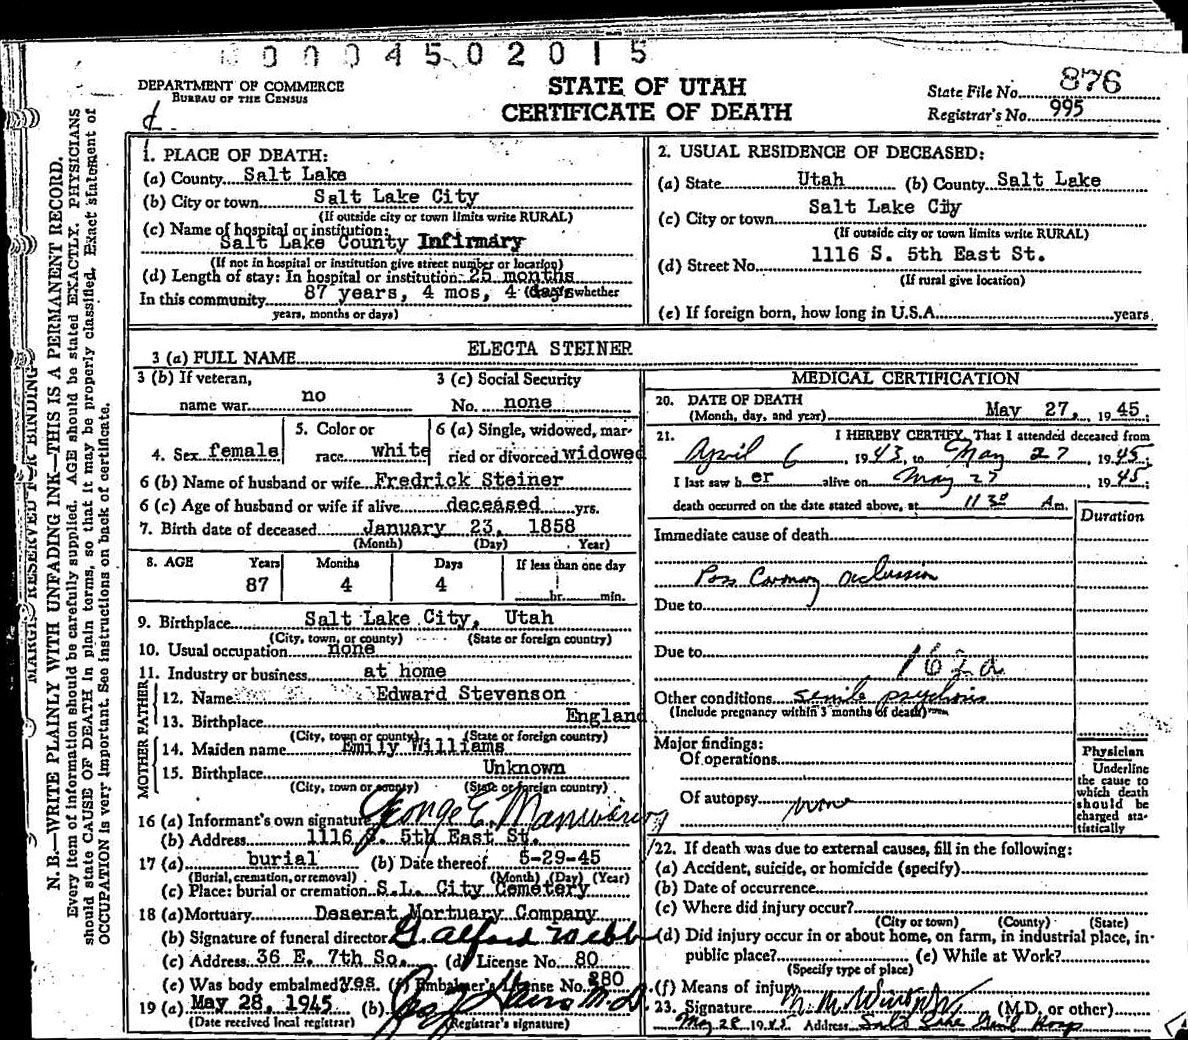 0 0 0 4 5 0 2 0 1 5
DEPARTMENT OF COMMERCE
BUREAU OF THE CENSUS
STATE OF UTAH
CERTIFICATE OF DEATH
State File No. 876
Registrar's No. 995
MARGIN RESERVED FOR BINDING
N. B.—WRITE PLAINLY WITH UNFADING INK—THIS IS A PERMANENT RECORD.
Every item of information should be carefully supplied. AGE should be stated EXACTLY. PHYSICIANS
should state CAUSE OF DEATH in plain terms, so that it may be properly classified. Exact statement of
OCCUPATION is very important. See instructions on back of certificate.
1. PLACE OF DEATH:
(a) County Salt Lake
(b) City or town Salt Lake City
(If outside city or town limits write RURAL)
(c) Name of hospital or institution:
Salt Lake County Infirmary
(If not in hospital or institution give street number or location)
(d) Length of stay: In hospital or institution 25 months
In this community 87 years, 4 mos, 4 days (Specify whether
years, months or days)
2. USUAL RESIDENCE OF DECEASED:
(a) State Utah (b) County Salt Lake
(c) City or town Salt Lake City
(If outside city or town limits write RURAL)
(d) Street No. 1116 S. 5th East St.
(If rural give location)
(e) If foreign born, how long in U.S.A. years
3 (a) FULL NAME ELECTA STEINER
3 (b) If veteran,
name war no
3 (c) Social Security
No. none
4. Sex female
5. Color or
race white
6 (a) Single, widowed, mar-
ried or divorced widowed
6 (b) Name of husband or wife Fredrick Steiner
6 (c) Age of husband or wife if alive deceased yrs.
7. Birth date of deceased January 23, 1858
(Month) (Day) Year)
8. AGE Years Months Days If less than one day
87 4 4 hr. min.
9. Birthplace Salt Lake City, Utah
(City, town, or county) (State or foreign country)
10. Usual occupation none
11. Industry or business at home
FATHER
12. Name Edward Stevenson
13. Birthplace England
(City, town or county) (State or foreign country)
MOTHER
14. Maiden name Emily Williams
15. Birthplace Unknown
(City, town or county) (State or foreign country)
16 (a) Informant's own signature George E. Manwaring
(b) Address 1116 S. 5th East St.
17 (a) burial (b) Date thereof 5-29-45
(Burial, cremation, or removal) (Month) (Day) (Year)
(c) Place: burial or cremation S.L. City Cemetery
18 (a) Mortuary Deseret Mortuary Company
(b) Signature of funeral director G. Alford Webb
(c) Address 36 E. 7th So. (d) License No. 80
(e) Was body embalmed yes. (f) Embalmer's License No. 380
19 (a) May 28, 1945 (b) M.D.
(Date received local registrar) (Registrar's signature)
MEDICAL CERTIFICATION
20. DATE OF DEATH
(Month, day, and year) May 27, 1945;
21. I HEREBY CERTIFY, That I attended deceased from
April 6 1943, to May 27 1945;
I last saw h er alive on May 27 1945;
death occurred on the date stated above, at 11 30 A m.
Duration
Immediate cause of death
Poss Coronary occlusion
Due to
Due to
162a
Other conditions senile psychosis
(Include pregnancy within 3 months of death)
Major findings:
Of operations
Of autopsy none
Physician
Underline
the cause to
which death
should be
charged sta-
tistically
22. If death was due to external causes, fill in the following:
(a) Accident, suicide, or homicide (specify)
(b) Date of occurrence
(c) Where did injury occur?
(City or town) (County) (State)
(d) Did injury occur in or about home, on farm, in industrial place, in
public place? (e) While at Work?
(Specify type of place)
(f) Means of injury
23. Signature (M.D., or other)
May 28 1945 Address Salt Lake Genl Hosp